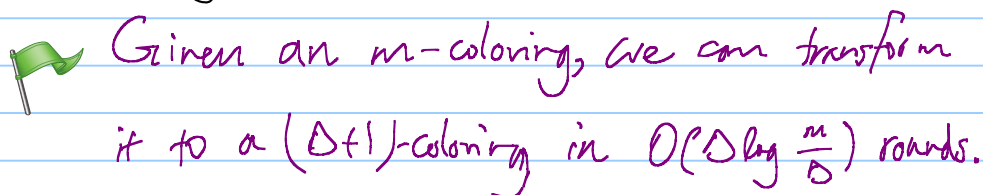 Given an m-coloring, we can transform
it to a (Δ+1)-coloring in O(Δ log m/Δ) rounds.